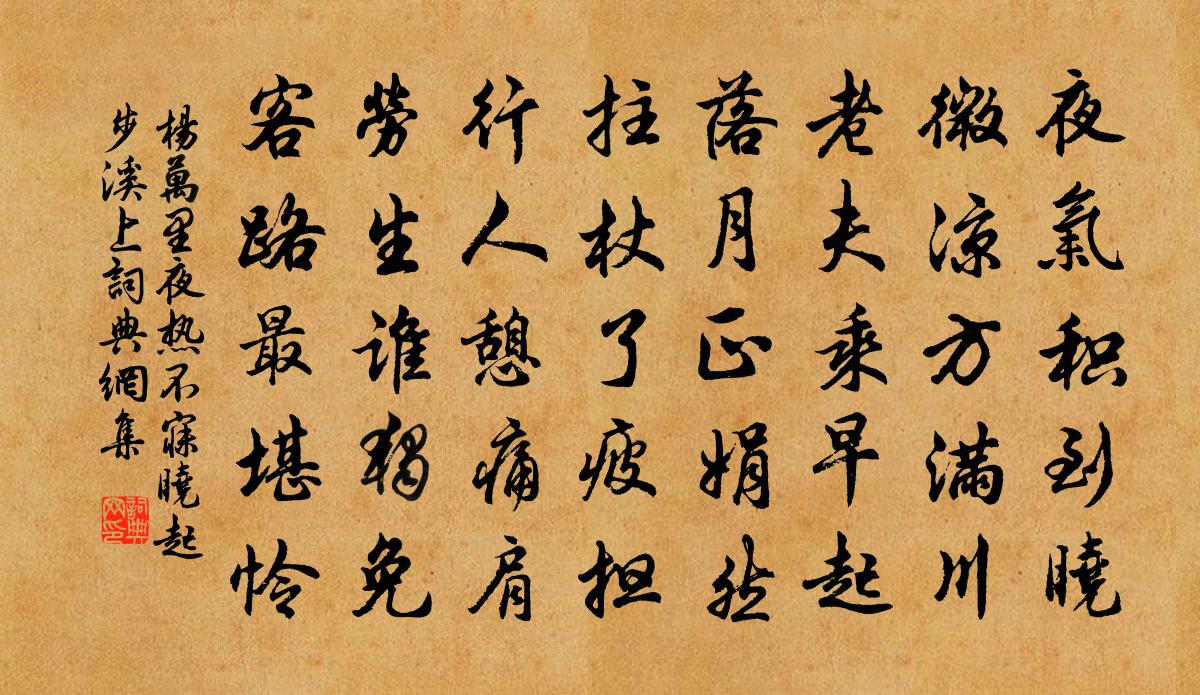 夜氣积到曉
微涼方满川
老夫乘早起
落月正娟然
拄杖了疲担
行人憩痛肩
勞生谁独免
客路最堪怜
楊萬里夜热不寐曉起
步溪上詞典網集
詞典
网印